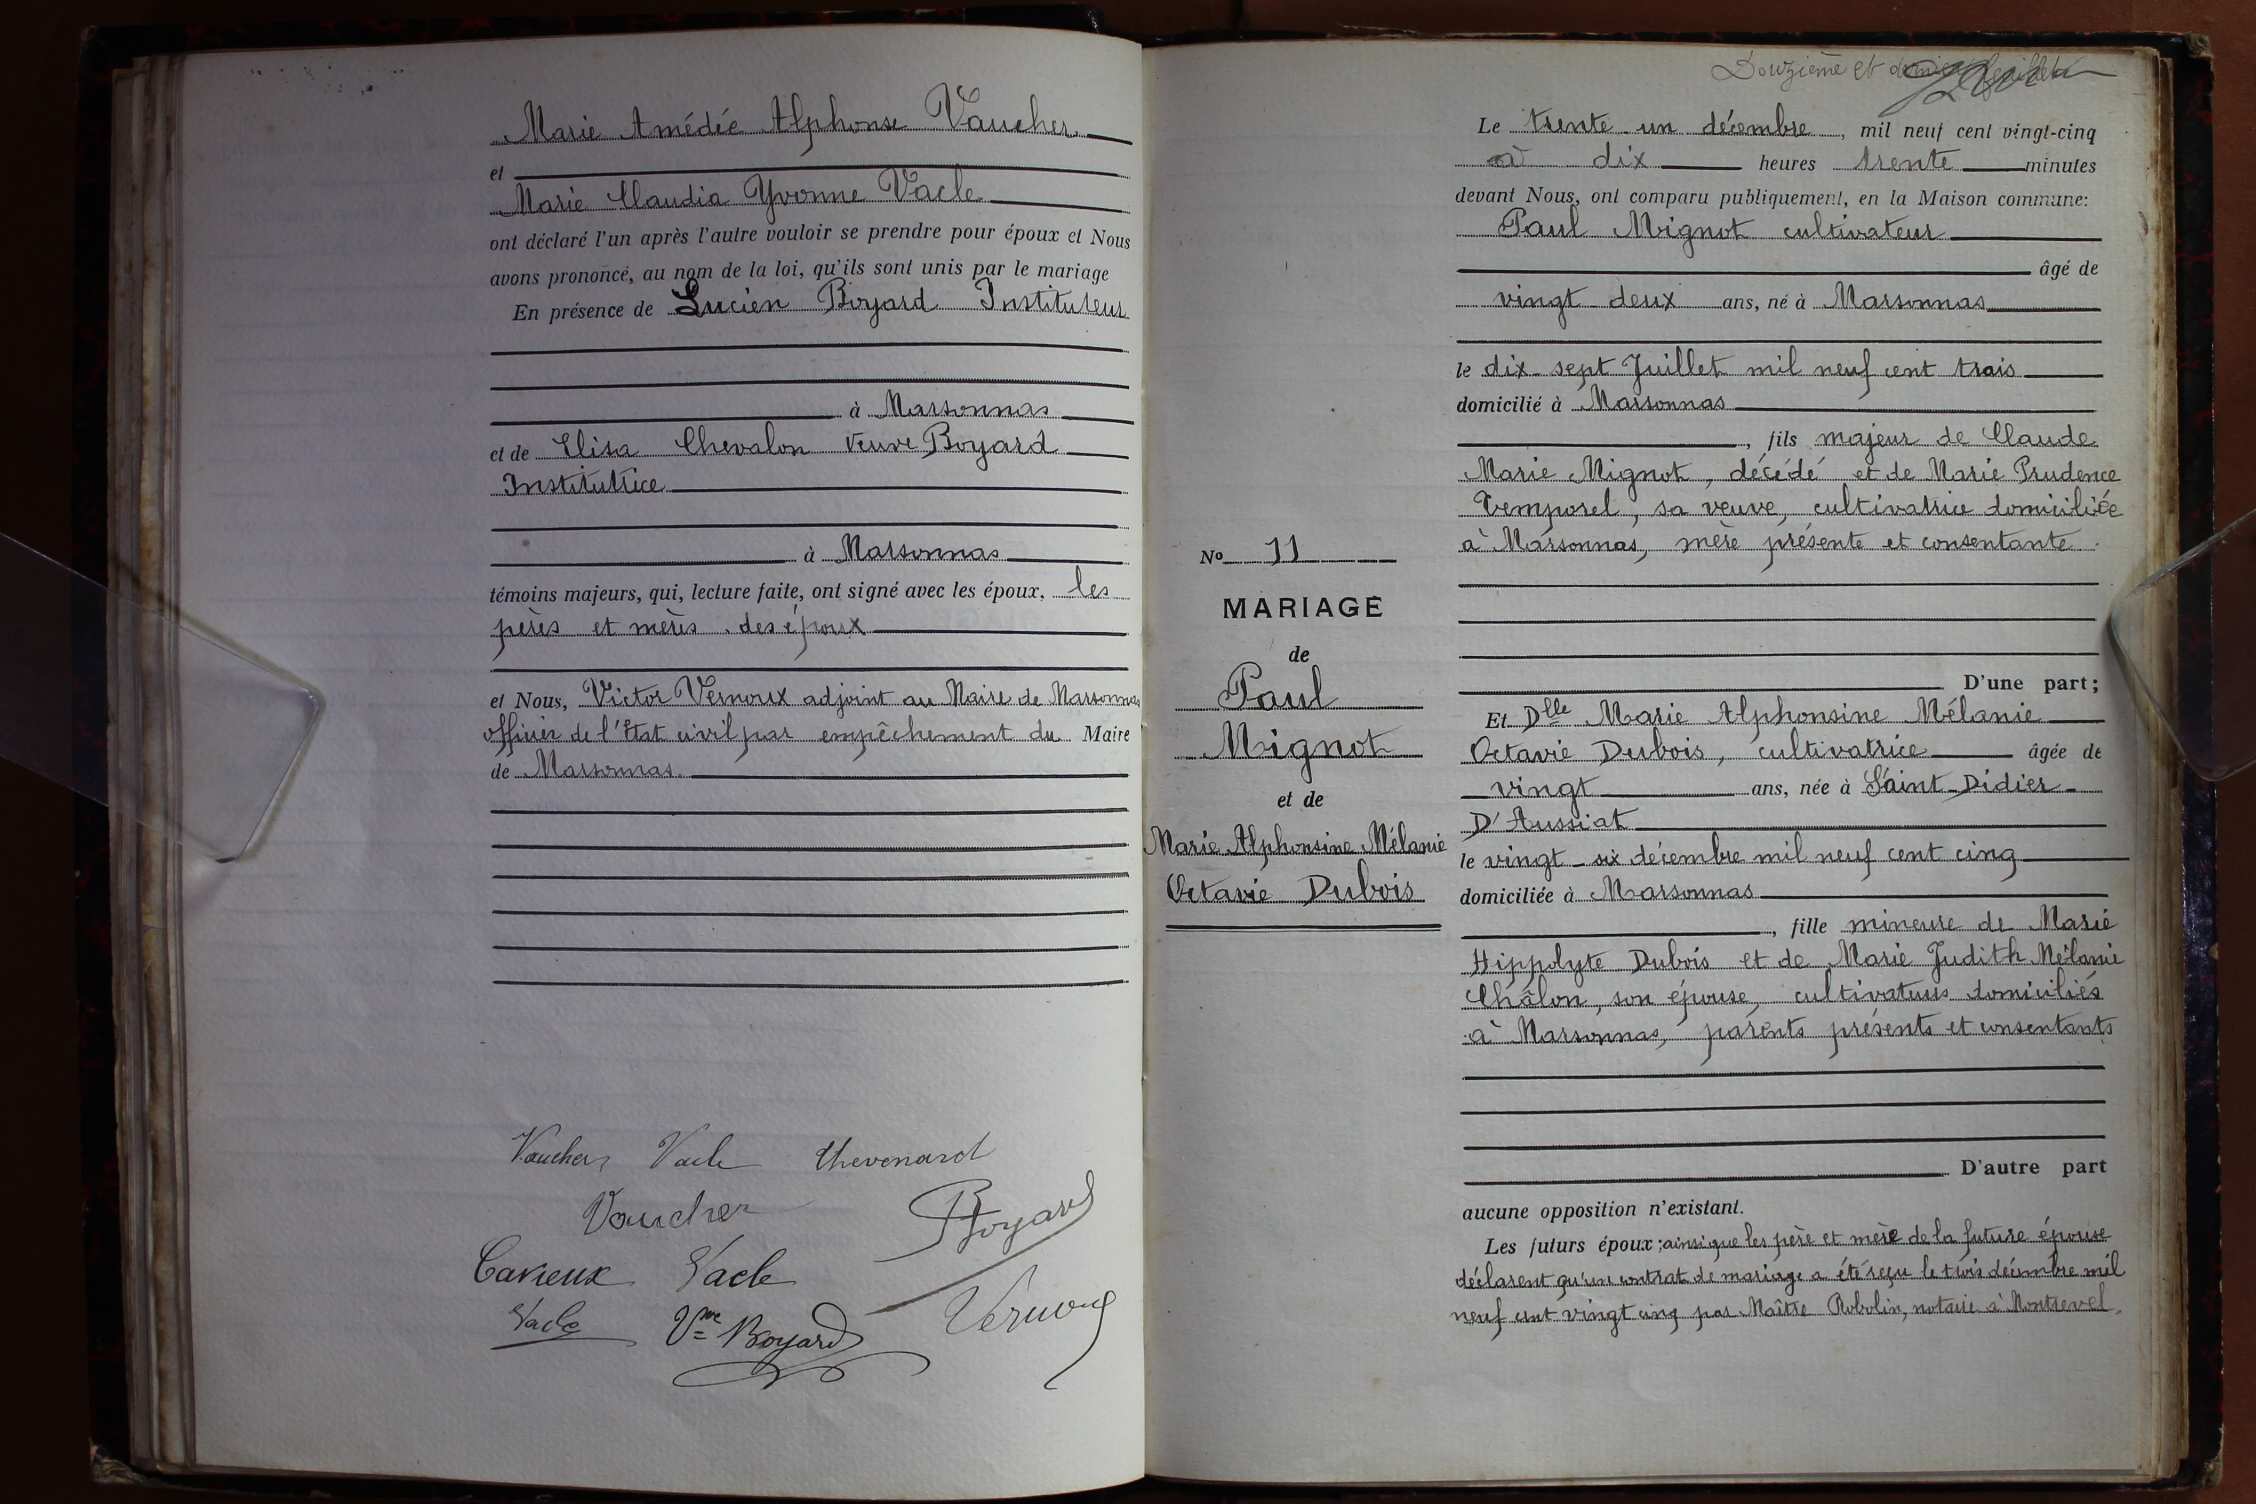 Marie Amédée Alphonse Vaucher
et
Marie Claudia Yvonne Vacle
ont déclaré l'un après l'autre vouloir se prendre pour époux et Nous
avons prononcé, au nom de la loi, qu'ils sont unis par le mariage
En présence de Lucien Boyard Instituteur
à Marsonnas
et de Elisa Chevalon veuve Boyard
Institutrice
à Marsonnas
témoins majeurs, qui, lecture faite, ont signé avec les époux, les
pères et mères des époux
et Nous, Victor Vernoux adjoint au Maire de Marsonnas
officier de l'Etat civil par empêchement du Maire
de Marsonnas
Vaucher Vacle Thevenard
Vaucher Boyard
Cavieux Vacle
Vacle Vve Boyard
Douzième et dernier feuillet
Le trente un décembre, mil neuf cent vingt-cinq
à dix heures trente minutes
devant Nous, ont comparu publiquement, en la Maison commune:
Paul Mignot cultivateur
âgé de
vingt deux ans, né à Marsonnas
le dix-sept Juillet mil neuf cent trois
domicilié à Marsonnas
, fils majeur de Claude
Marie Mignot, décédé et de Marie Prudence
Temporel, sa veuve, cultivatrice domiciliée
à Marsonnas, mère présente et consentante.
D'une part;
Et Dlle Marie Alphonsine Mélanie
Octavie Dubois, cultivatrice âgée de
vingt ans, née à Saint-Didier-
D'Aussiat
le vingt-six décembre mil neuf cent cinq
domiciliée à Marsonnas
, fille mineure de Marie
Hippolyte Dubois et de Marie Judith Mélanie
Châlon, son épouse, cultivateurs domiciliés
à Marsonnas, parents présents et consentants
D'autre part
aucune opposition n'existant.
Les futurs époux ; ainsi que les père et mère de la future épouse
déclarent qu'un contrat de mariage a été reçu le trois décembre mil
neuf cent vingt cinq par Maître Robolin, notaire à Montrevel.
No 11
MARIAGE
de
Paul
Mignot
et de
Marie Alphonsine Mélanie
Octavie Dubois